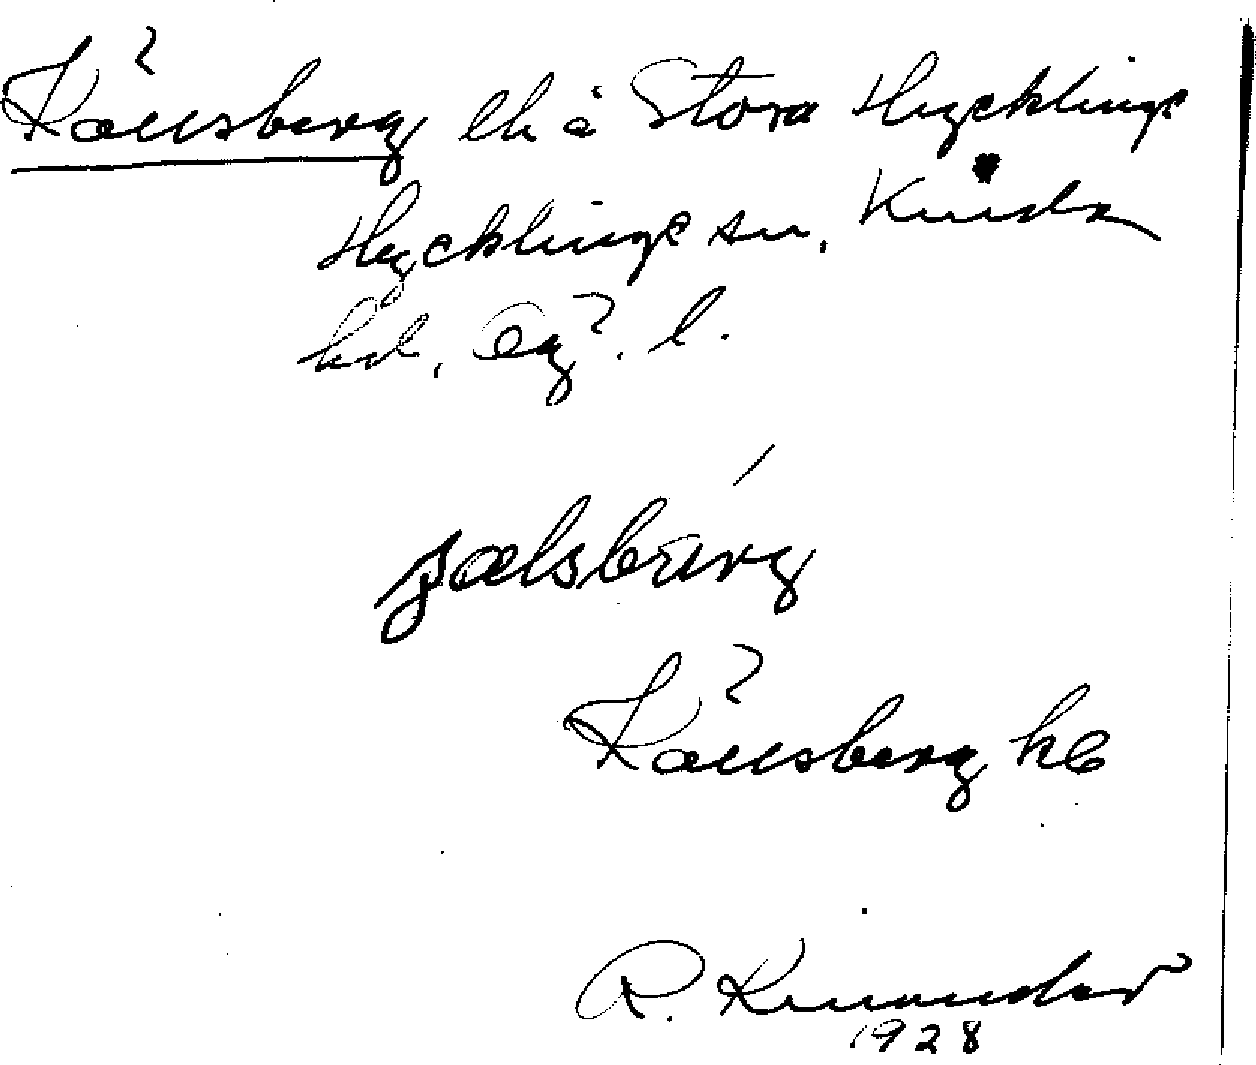 Källsberg lh å Stora Hycklinge
Hycklinge sn, Kinda
hd, Ög. l.
Källsberg
R. Kinander
1928